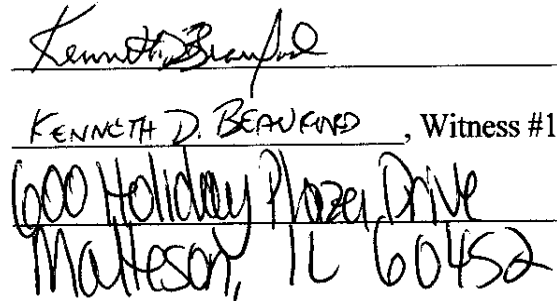 Kenneth D. Beauford
KENNETH D. BEAUFORD, Witness #1
600 Holiday Plaza Drive
Matteson, IL 60452